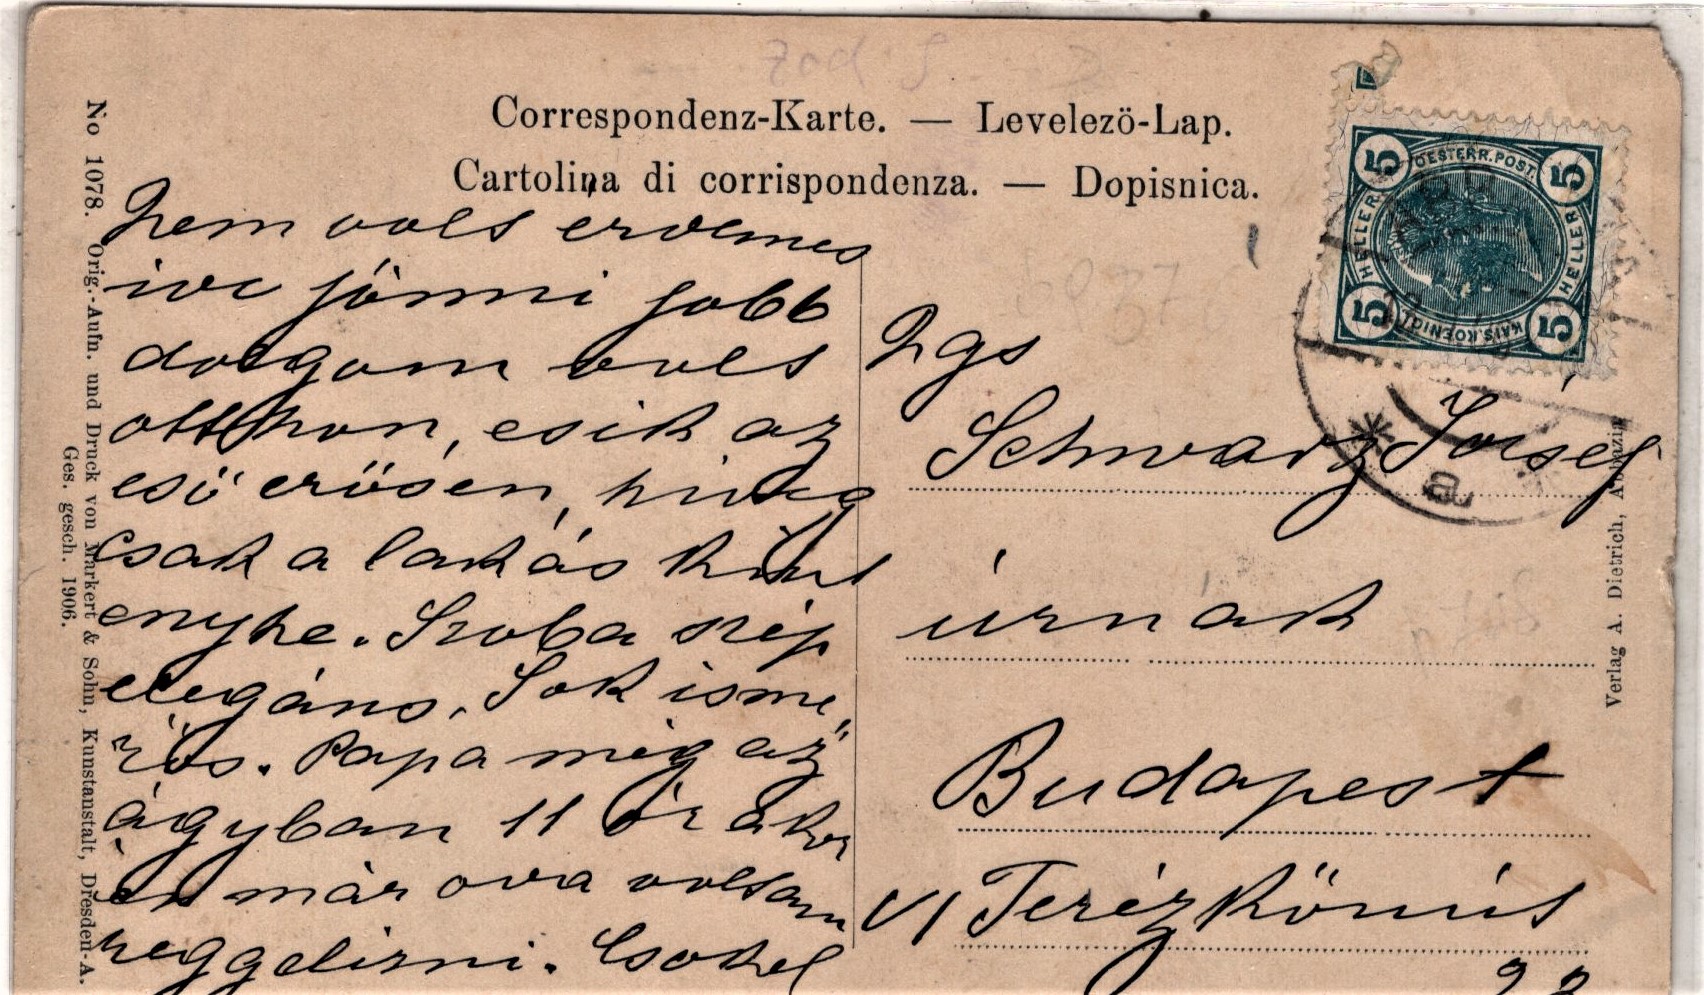 Correspondenz-Karte. — Levelezö-Lap.
Cartolina di corrispondenza. — Dopisnica.
No 1078. Orig.-Aufn. und Druck von Markert & Sohn, Kunstanstalt, Dresden-A.
Ges. gesch. 1906.
Nem volt erdemes
ide jönni jobb
dolgom volt
otthon, esik az
eső erősen, hideg
csak a lakás kint
enyhe. Szoba szép
elegáns. Sok isme
rös. Papa még az
ágyban 11 órakor
én már ova voltam
reggelizni. Csokol
Ngs
Schwarz József
úrnak
Budapest
VI Teréz körút
22
Verlag A. Dietrich, Abbazia
5 5 5 5
OESTERR. POST.
HELLER HELLER
KAIS. KOENIGL.
* a